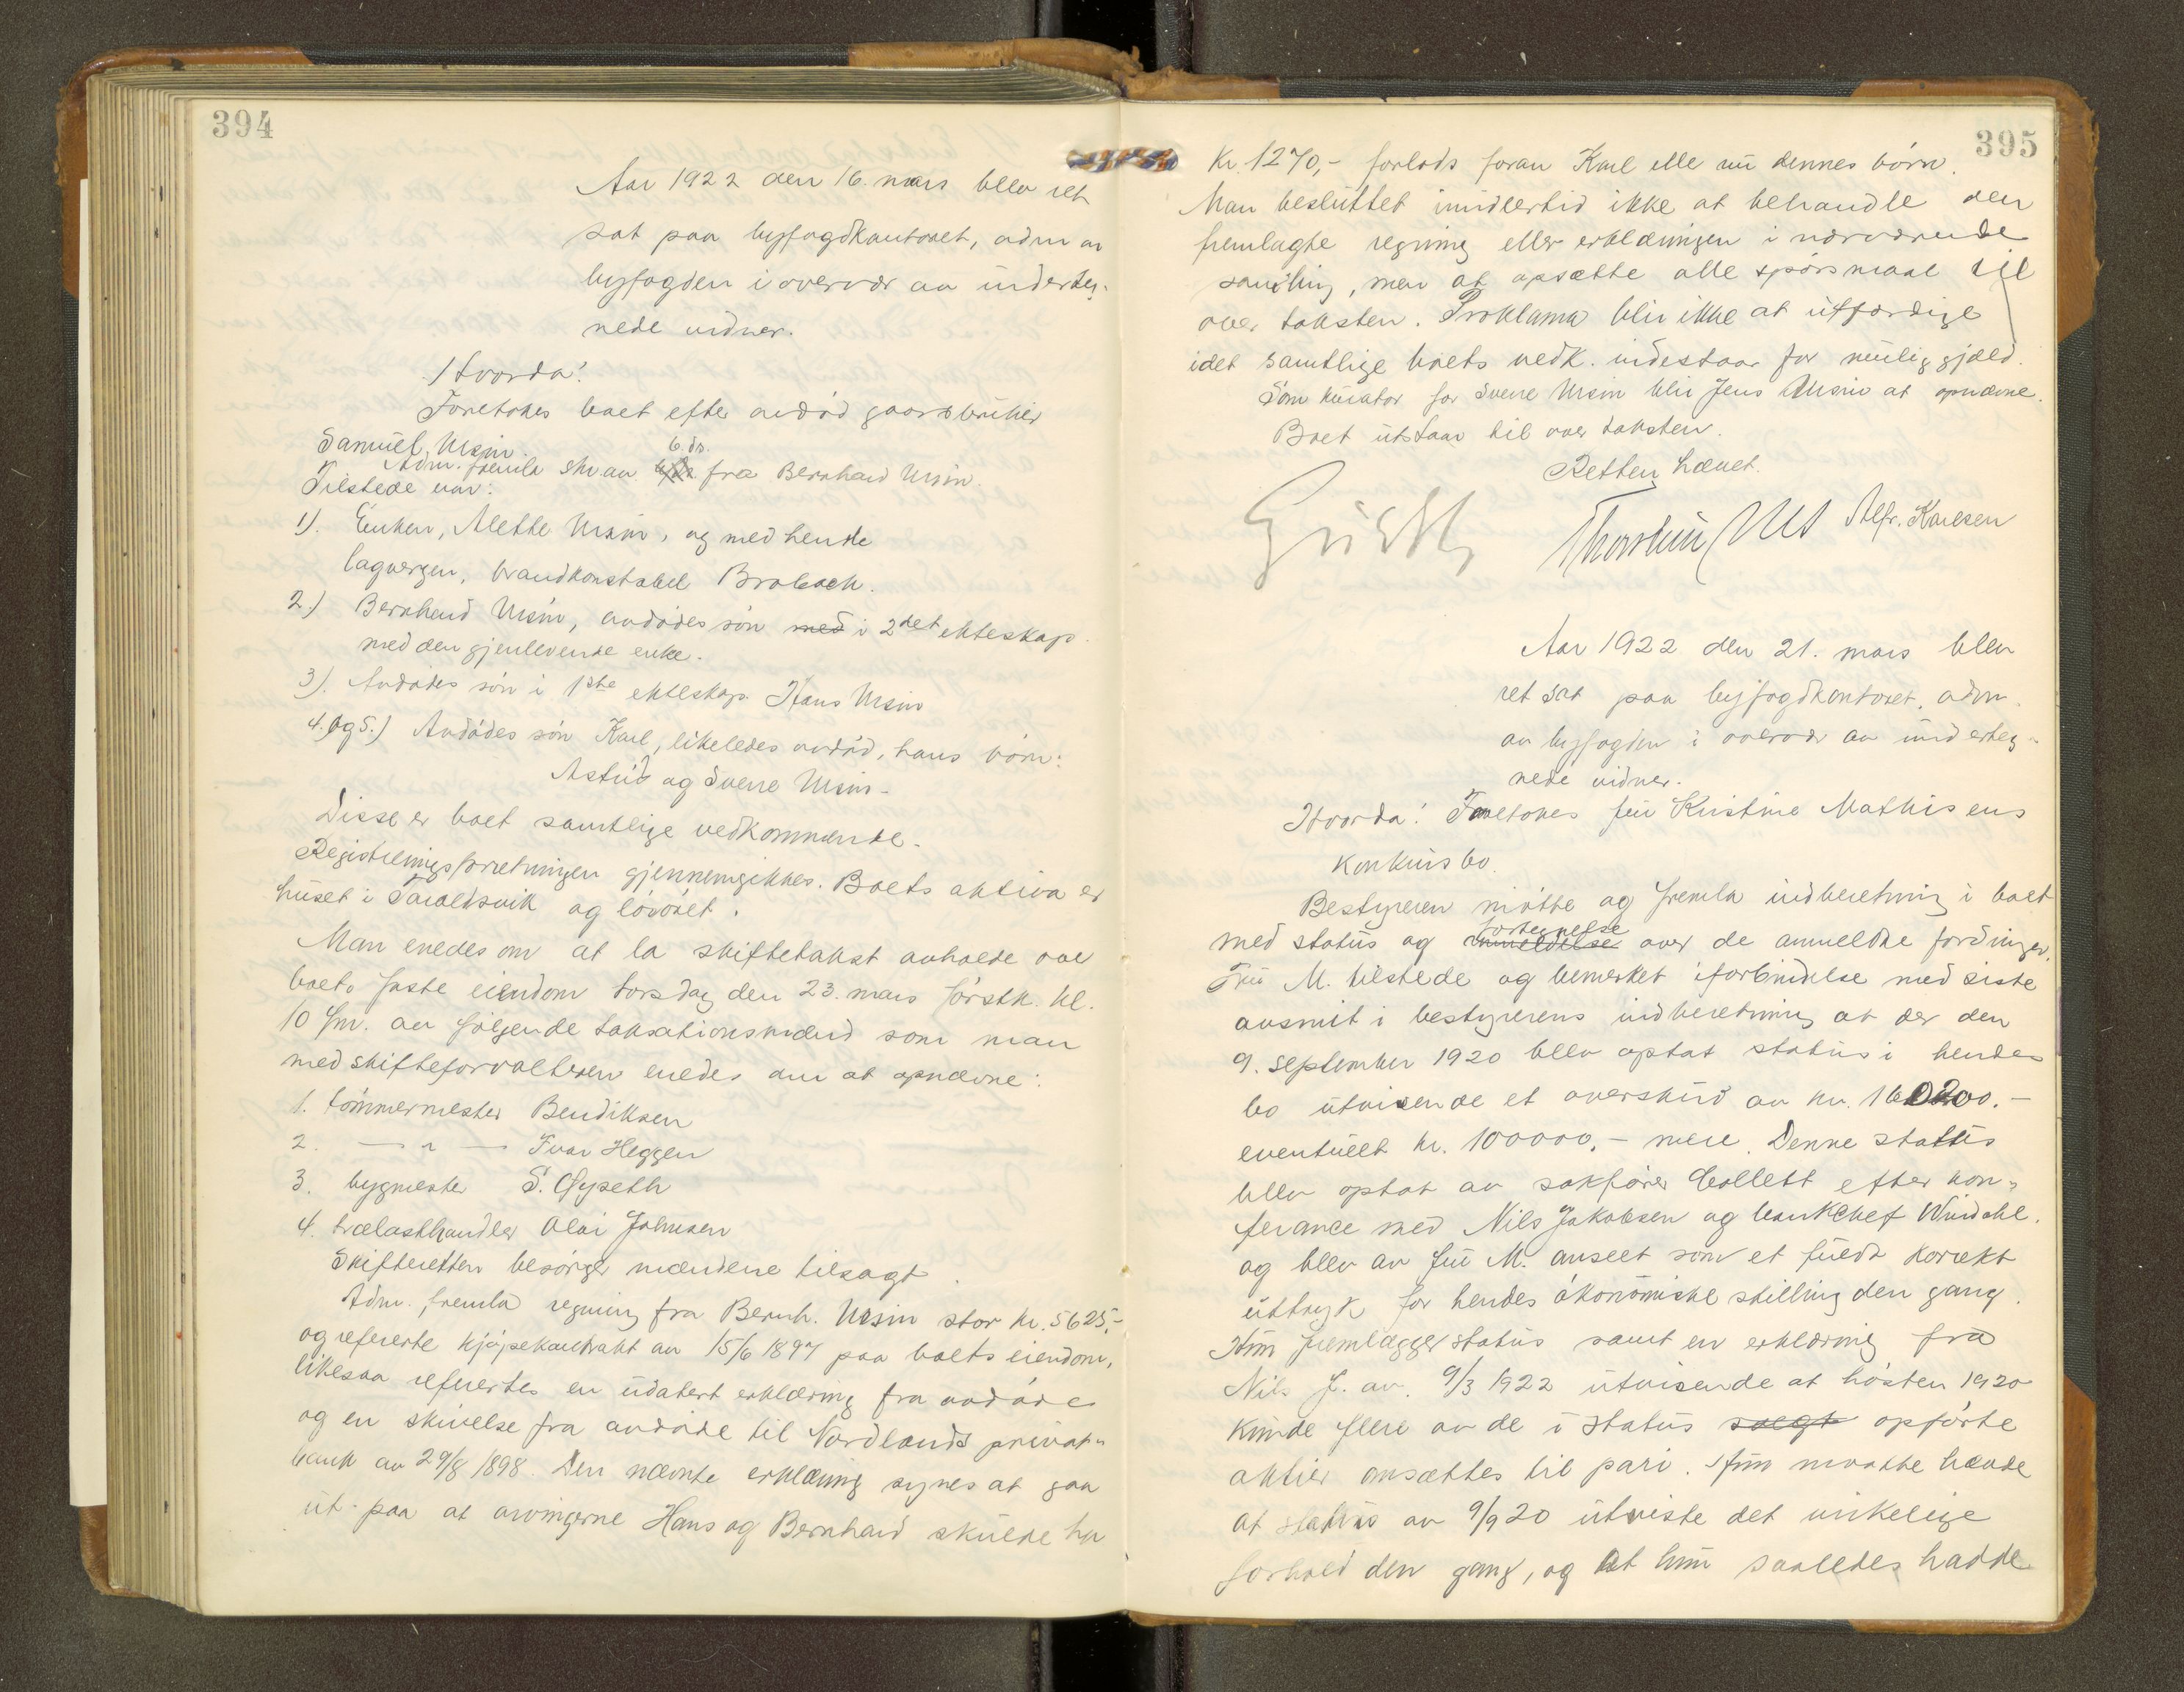 394
Aar 1922 den 16. mars blev ret
sat paa byfogdkontoret, adm av
byfogden i overvær av underteg-
nede vidner.
Hvorda:
Foretokes boet efter avdød gaardbruker
Samuel Ursin.
6 ds.
Adm. fremla skr. av fra Bernhard Ursin.
Tilstede var:
1). Enken, Alette Ursin, og med hende
lagvergen, brandkonstabel Brobach.
2.) Bernhard Ursin, avdødes søn med i 2det ekteskap
med den gjenlevende enke.
3). Avdødes søn i 1ste ekteskap Hans Ursin
4. og 5.) Avdødes søn Karl, likeledes avdød, hans børn:
Astrid og Sverre Ursin-
Disse er boet samtlige vedkommende.
Registreringsforretningen gjennemgikkes. Boets aktiva er
huset i Taraldsvik og løsøret.
Man enedes om at la skiftetakst avholde over
boets faste eiendom torsdag den 23. mars førstk. kl.
10 fm. av følgende taksationsmænd som man
med skifteforvalteren enedes om at opnævne:
1. tømmermester Bendiksen
2. — " — Ivar Heggen
3. bygmester S. Gyseth
4. trælasthandler Olai Johnsen
Skifteretten besørger mændene tilsagt.
Adm. fremla regning fra Bernh. Ursin stor kr. 5625,-
og refererte kjøpekontrakt av 15/6 1897 paa boets eiendom,
likesaa refertes en udatert erklæring fra avdøde
og en skrivelse fra avdøde til Nordlands privat-
bank av 29/8 1898. Den nævnte erklæring synes at gaa
ut paa at arvingerne Hans og Bernhard skulde ha
395
Kr. 1270,- forlods foran Karl elle nu dennes børn.
Man besluttet imidlertid ikke at behandle den
fremlagte regning eller erklæringen i nærværende
samling, men at opsætte alle spørsmaal til
over taksten. Proklama blir ikke at utfærdige
idet samtlige boets vedk. indestaar for mulig gjæld.
Som kurator for Sverre Ursin blir Jens Ursin at opnævne.
Boet utstaar til over taksten.
Retten hævet.
Alfr. Karlsen
Aar 1922 den 21. mars blev
ret sat paa byfogdkontoret, adm.
av byfogden i overvær av underteg-
nede vidner.
Hvorda: Foretokes fru Kristine Mathisens
konkursbo.
Bestyreren møtte og fremla indberetning i boet
fortegnelse
med status og anmeldelse over de anmeldte fordringer.
Fru M. tilstede og bemerket i forbindelse med siste
avsnit i bestyrerens indberetning at der den
9. september 1920 blev optat status i hendes
bo utvisende et overskud av kr. 160200.-
eventuelt kr. 100000.- mere. Denne status
blev optat av sakfører Collett efter kon-
ferance med Nils Jakobsen og bankchef Windahl.
og blev av fru M. anseet som et fuldt korrekt
uttryk for hendes økonomiske stilling den gang.
Hun fremlægger status samt en erklæring fra
Nils J. av 9/3 1922 utvisende at høsten 1920
kunde flere av de i status solgt opførte
aktier omsættes til pari. Hun maatte hævde
at status av 9/9 20 utviste det virkelige
forhold den gang, og at hun saaledes hadde